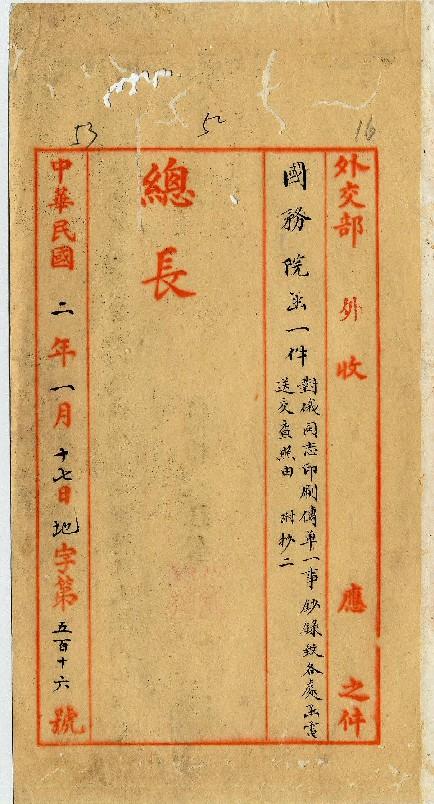 53
52
16
外交部 外 收 應 之件
國務院函一件 對俄同志印刷傳單一事鈔錄致各處函電
送交查照由 附抄二
總長
中華民國二年一月十七日地字第五百十六號